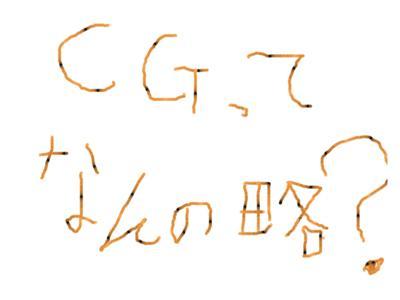 CGって
なんの略?